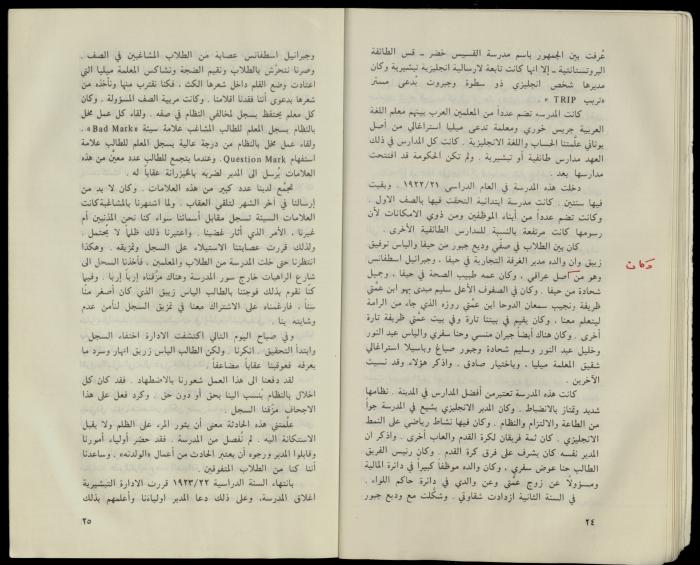 عُرفت بين الجمهور باسم مدرسة القسيس خضر ـ قس الطائفة
البروتستانتية ـ إلا انها كانت تابعة لارسالية انجليزية تبشيرية وكان
مديرها شخص انجليزي ذو سطوة وجبروت يُدعى مستر
«تريب TRIP »
كانت المدرسه تضم عدداً من المعلمين العرب بينهم معلم اللغة
العربية جريس خوري ومعلمة تدعى ميليا استراغالي من أصل
يوناني علّمتنا الحساب واللغة الانجليزية . كانت كل المدارس في ذلك
العهد مدارس طائفية أو تبشيرية . ولم تكن الحكومة قد افتتحت
مدارسها بعد .
دخلت هذه المدرسة في العام الدراسي ١٩٢٢/٢١ . وبقيت
فيها سنتين . كانت مدرسة ابتدائية التحقت فيها بالصف الاول .
وكانت تضم عدداً من أبناء الموظفين ومن ذوي الامكانات لأن
رسومها كانت مرتفعة بالنسبة للمدارس الطائفية الأخرى .
كان بين الطلاب في صفّي وديع جبور من حيفا والياس توفيق
زريق وان والده مدير الغرفة التجارية في حيفا ، وجبرائيل اسطفانس
وكان
وهو من أصل عراقي ، وكان عمه طبيب الصحة في حيفا ، وجميل
شحادة من حيفا . وكان في الصفوف الأعلى سليم مبدى يهو ابن عمّتي
ظريفة ونجيب سمعان الدوحا ابن عمّتي روزه الذي جاء من الرامة
ليتعلم معنا ، وكان يقيم في بيتنا تارة وفي بيت عمّتي ظريفة تارة
أخرى . وكان هناك أيضاً جبران منسي وحنا سفري والياس عبد النور
وخليل عبد النور وسليم شحادة وجبور صباغ وباسيلا استراغالي
شقيق المعلمة ميليا ، وباختيار صادق . واذكر هؤلاء وقد نسيت
الآخرين .
كانت هذه المدرسة تعتبر من أفضل المدارس في المدينة . نظامها
شديد وتمتاز بالانضباط . وكان المدير الانجليزي يشيع في المدرسة جواً
من الطاعة والالتزام والنظام . وكان فيها نشاط رياضي على النمط
الانجليزي . كان ثمة فريقان لكرة القدم والعاب أخرى . واذكر ان
المدير نفسه كان يشرف على فرق كرة القدم . وكان رئيس الفريق
الطالب حنا عوض سفري ، وكان والده موظفاً كبيراً في دائرة المالية
ومسؤولاً عن زوج عمّتي وعن والدي في دائرة حاكم اللواء .
في السنة الثانية ازدادت شقاوتي . وشكّلت مع وديع جبور
٢٤
وجبرائيل اسطفانس عصابة من الطلاب المشاغبين في الصف .
وصرنا نتحرّش بالطلاب ونقيم الضجة ونشاكس المعلمة ميليا التي
اعتادت وضع القلم داخل شعرها الكث ، فكنا نقترب منها ونأخذه من
شعرها بدعوى أننا فقدنا اقلامنا . وكانت مربية الصف المسؤولة . وكان
كل معلم يحتفظ بسجل لمخالفي النظام في صفه . ولقاء كل عمل مخل
بالنظام يسجل المعلم للطالب المشاغب علامة سيئة «Bad Mark».
ولقاء عمل مخل بالنظام من درجة عالية يسجل المعلم للطالب علامة
استفهام Question Mark . وعندما يتجمع للطالب عدد معيّن من هذه
العلامات يُرسل الى المدير لضربه بالخيزرانة عقاباً له .
تجمّع لدينا عدد كبير من هذه العلامات . وكان لا بد من
إرسالنا في آخر الشهر لتلقي العقاب . ولما اشتهرنا بالمشاغبة كانت
العلامات السيئة تسجل مقابل أسمائنا سواء كنا نحن المذنبين أم
غيرنا ، الأمر الذي أثار غضبنا . واعتبرنا ذلك ظلماً لا يُحتمل .
ولذلك قررت عصابتنا الاستيلاء على السجل وتمزيقه . وهكذا
انتظرنا حتى خلت المدرسة من الطلاب والمعلمين ، فأخذنا السجل الى
شارع الراهبات خارج سور المدرسة وهناك مزّقناه إرباً إرباً . وفيما
كنّا نقوم بذلك فوجئنا بالطالب الياس زريق الذي كان أصغر منّا
سناً ، فارغمناه على الاشتراك معنا في تمزيق السجل لنأمن عدم
وشايته بنا .
وفي صباح اليوم التالي اكتشفت الادارة اختفاء السجل .
وابتدأ التحقيق . انكرنا . ولكن الطالب الياس زريق انهار وسرد ما
يعرفه فعوقبنا عقاباً مضاعفاً .
لقد دفعنا الى هذا العمل شعورنا بالاضطهاد . فقد كان كل
اخلال بالنظام يُنسب الينا بحق أو دون حق . وكرد فعل على هذا
الاجحاف مزّقنا السجل .
علّمتني هذه الحادثة معنى أن يثور المرء على الظلم ولا يقبل
الاستكانة اليه . لم نُفصل من المدرسة . فقد حضر أولياء أمورنا
وقابلوا المدير ورجوه أن يعتبر الحادث من أعمال «الولدنه» . وساعدنا
أننا كنا من الطلاب المتفوقين .
بانتهاء السنة الدراسية ١٩٢٣/٢٢ قررت الادارة التبشيرية
اغلاق المدرسة، وعلى ذلك دعا المدير اولياءنا وأعلمهم بذلك
٢٥